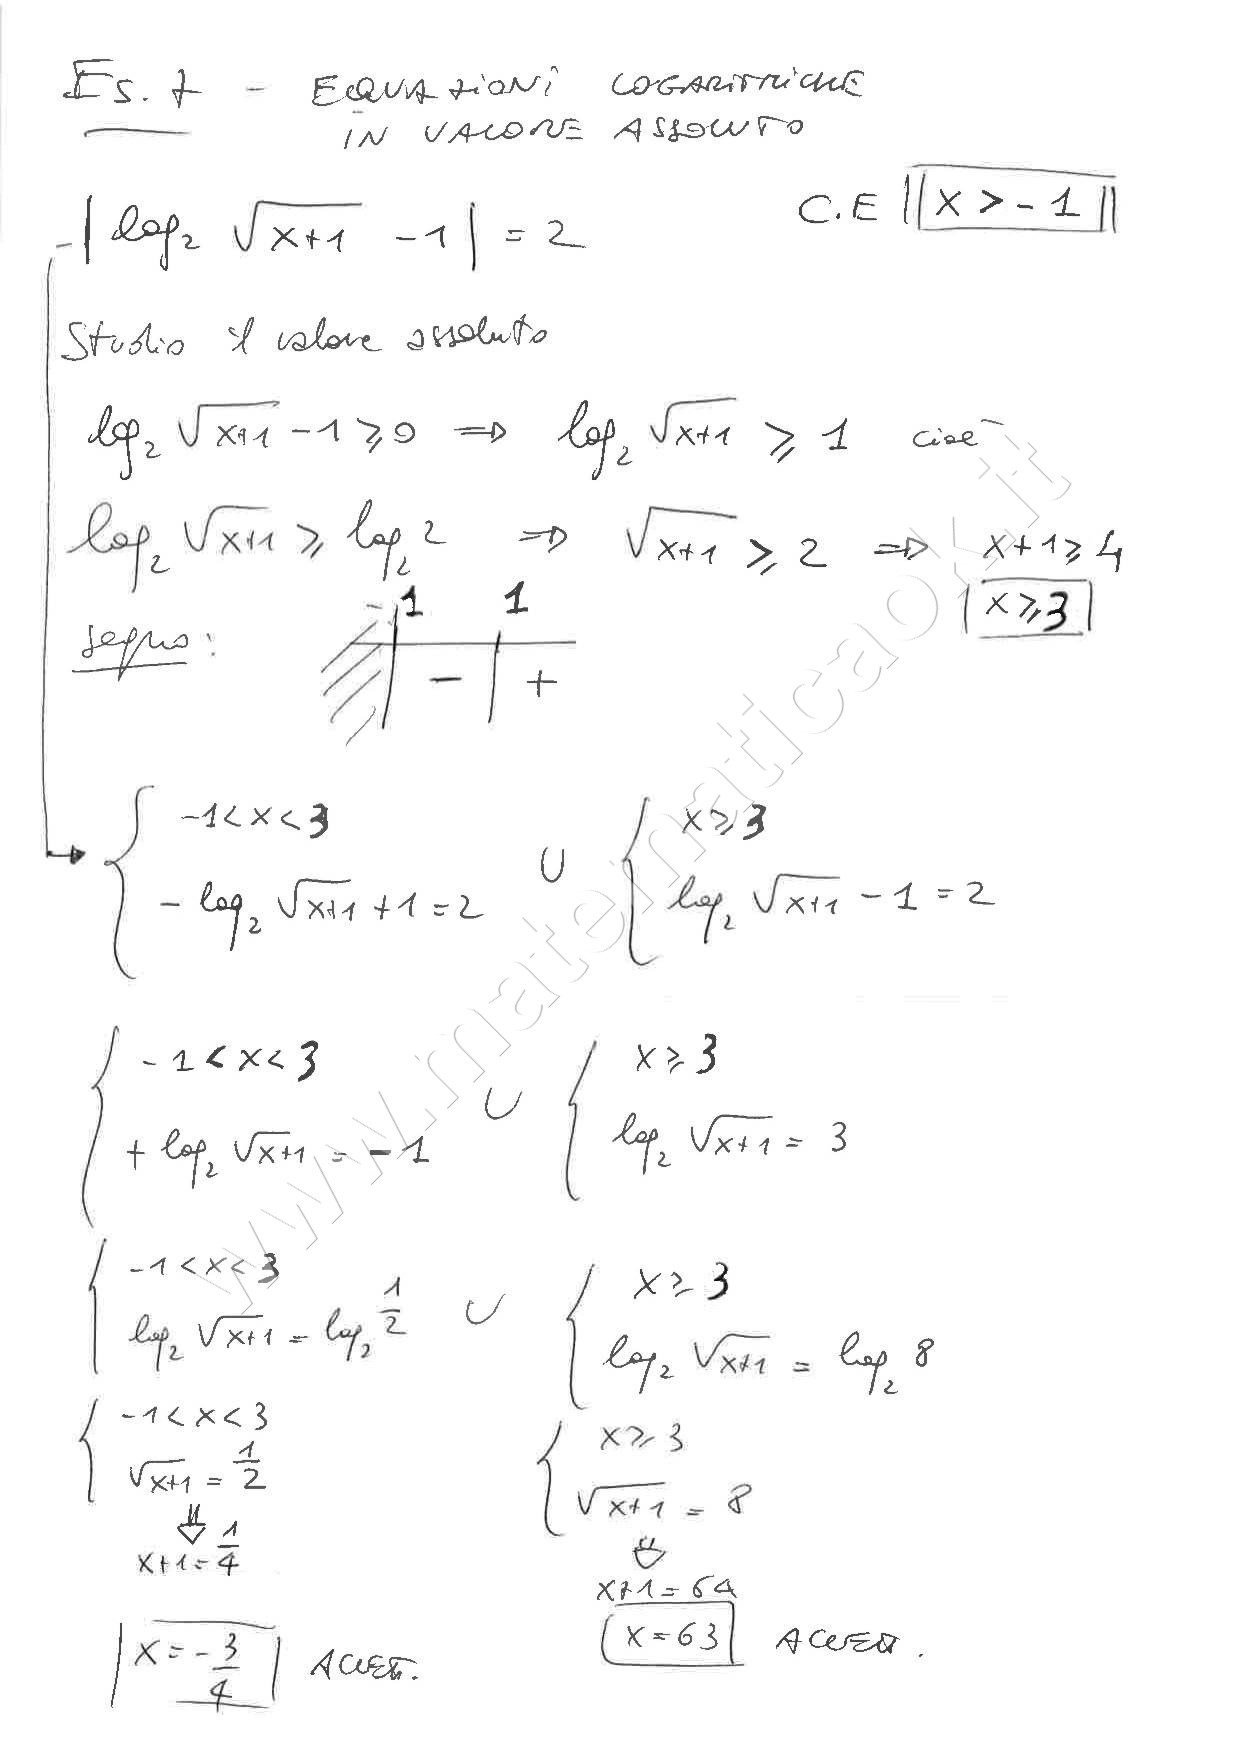 Es. 7 - EQUAZIONI LOGARITMICHE
IN VALORE ASSOLUTO
C.E x > -1
- |log₂ √(x+1) - 1| = 2
Studio il valore assoluto
log₂ √(x+1) - 1 ≥ 0 ⇒ log₂ √(x+1) ≥ 1 cioè
log₂ √(x+1) ≥ log₂ 2 ⇒ √(x+1) ≥ 2 ⇒ x+1 ≥ 4
x ≥ 3
segno:
-1 1
- +
{ -1 < x < 3 ∪ { x ≥ 3
- log₂ √(x+1) + 1 = 2 log₂ √(x+1) - 1 = 2
{ -1 < x < 3 ∪ { x ≥ 3
+ log₂ √(x+1) = -1 log₂ √(x+1) = 3
{ -1 < x < 3 ∪ { x ≥ 3
log₂ √(x+1) = log₂ 1/2 log₂ √(x+1) = log₂ 8
{ -1 < x < 3 { x ≥ 3
√(x+1) = 1/2 √(x+1) = 8
⇓ ⇓
x+1 = 1/4 x+1 = 64
x = -3/4 ACCET. x = 63 ACCET.
www.matematicaok.it